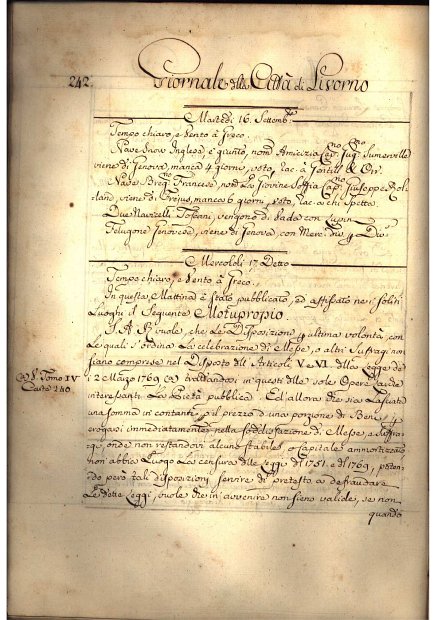 242.
Giornale della Città di Livorno
Martedì 16. Settemb.re
Tempo chiaro, e Vento à Greco.
Nave Snow Inglese, è giunto, nom.
viene di Genova, manca 4 giorni, 
Nave Francese nom.a La Giovine Sofia Cap.no Giuseppe
viene di manca 6 giorni, a chi spetta
Due Navicelli Toscani vengono di con
Felugone Genovese, viene di Genova, con Merc. p. Div.
Mercoledì 17 Detto
Tempo chiaro, e Vento à Greco.
In questa Mattina è stato pubblicato, ed affissato nei soliti
Luoghi il Seguente Motuproprio.
S. A. R. vuole, che le Disposizioni p. ultima volontà, con
le quali s'ordina la celebrazione di Messe, o altri Sufragi non
siano comprese nel Disposto dell'Articoli V e VI. della Legge de
i 2 Marzo 1769 (a) trattandosi in questi delle sole Opere Laicali
interessanti la Pietà pubblica. Ed allora che sia Lasciata
una somma in contanti, o il prezzo d'una porzione di Beni p.
erogarsi immediatamente nella sodisfazione di Messe, e suffra-
gi, onde non restandovi alcuno stabile, o capitale ammortizzato
non abbia luogo la censura delle Leggi del 1751. e del 1769, 
però tali disposizioni servire di pretesto a defraudare
le dette Leggi, vuole che in avvenire non sieno valide, se non
quando
(a) V. Tomo IV
Carte 240.